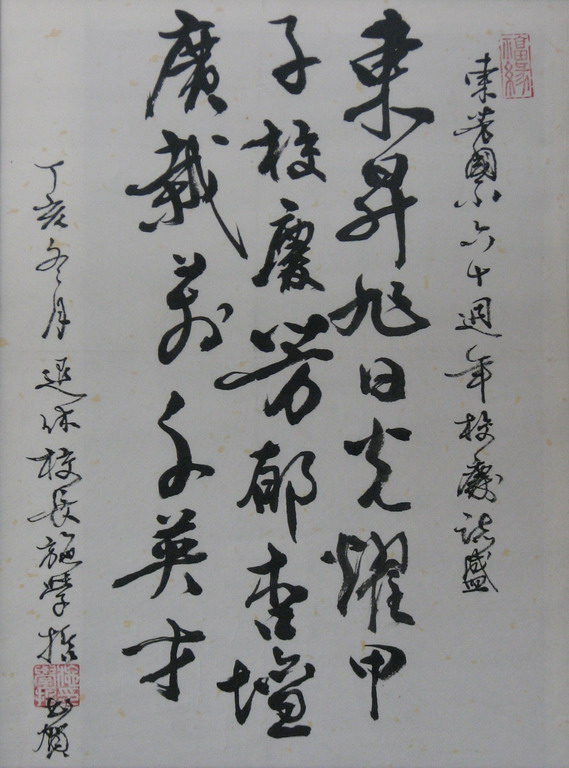 福緣
東芳國小六十週年校慶誌盛
東昇旭日光耀甲
子校慶芳郁杏壇
廣栽萬千英才
丁亥冬月退休校長施學